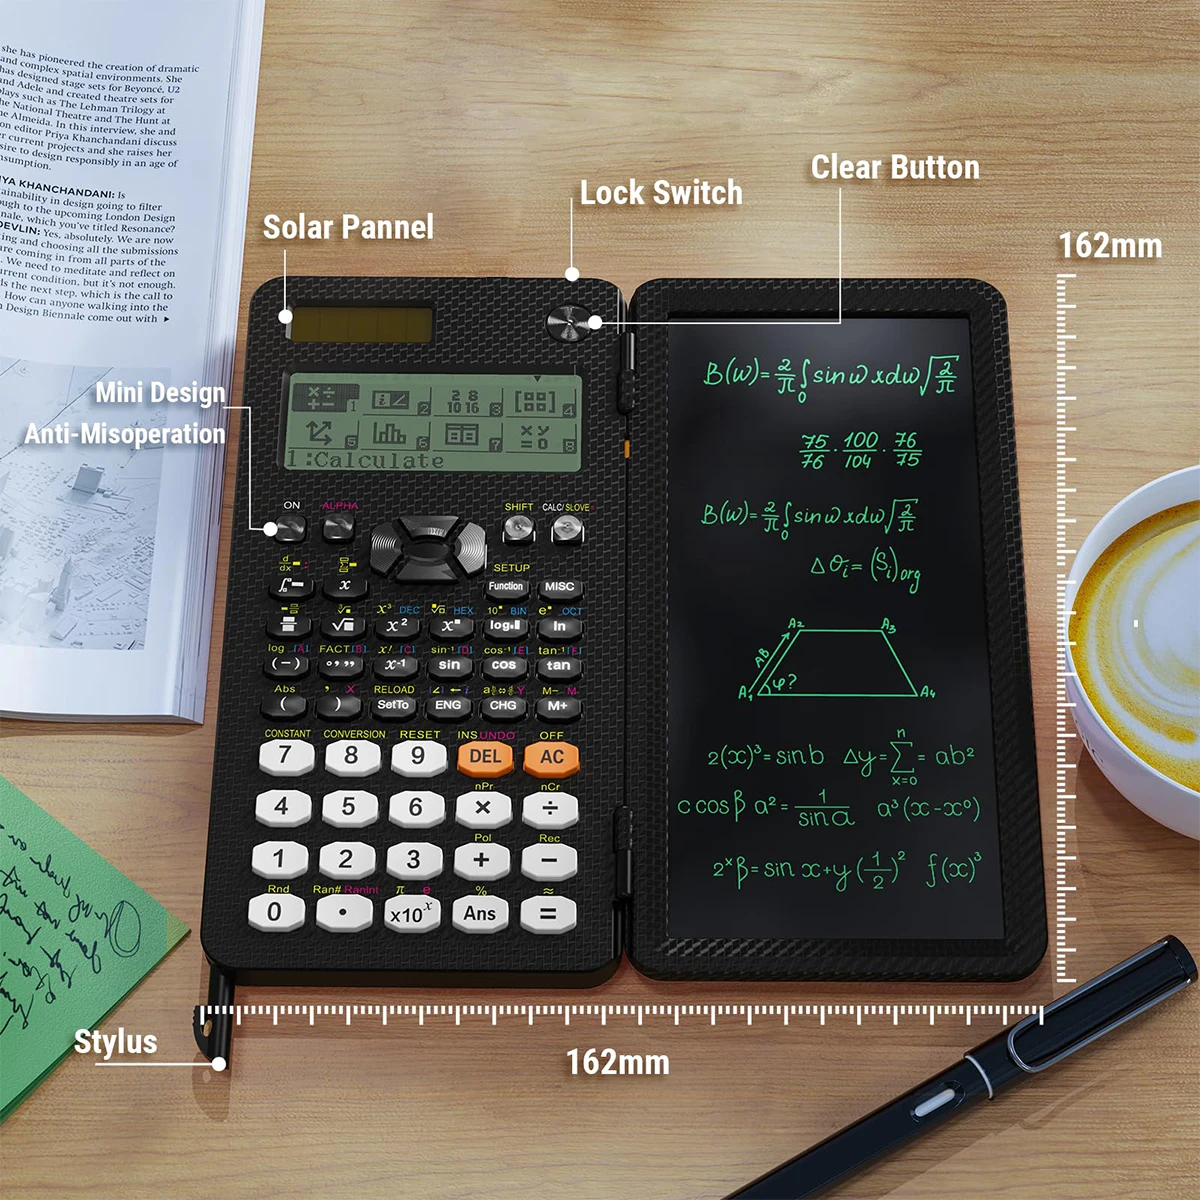 she has pioneered the creation of dramatic
and complex spatial environments. She
has designed stage sets for Beyoncé, U2
and Adele and created theatre sets for
plays such as The Lehman Trilogy at
the National Theatre and The Hunt at
the Almeida. In this interview, she and
editor Priya Khanchandani discuss
current projects and she raises her
desire to design responsibly in an age of
consumption.
KHANCHANDANI: Is
sustainability in design going to filter
through to the upcoming London Design
which you've titled Resonance?
DEVLIN: Yes, absolutely. We are now
and choosing all the submissions
are coming in from all parts of the
We need to meditate and reflect on
current condition, but it's not enough.
is the next step, which is the call to
How can anyone walking into the
Design Biennale come out with ▸
Solar Pannel
Lock Switch
Clear Button
162mm
Mini Design
Anti-Misoperation
Stylus
162mm
1
2
2 8
10 16 3
4
5
6
7
x y
= 0 8
1:Calculate
ON ALPHA SHIFT CALC/SLOVE=
SETUP
d/dx
x Function MISC
x³ DEC HEX 10 BIN e OCT
x² log ln
log [A] FACT[B] x! [C] sin⁻¹[D] cos⁻¹[E] tan⁻¹[F]
(−) x⁻¹ sin cos tan
Abs , X RELOAD ∠ i Y M− M
( ) SetTo ENG CHG M+
CONSTANT CONVERSION RESET INS UNDO OFF
7 8 9 DEL AC
nPr nCr
4 5 6 × ÷
Pol Rec
1 2 3 + −
Rnd Ran# RanInt π e % ≈
0 • ×10ˣ Ans =
B(ω)=2/π ∫₀ sinω x dω √2/π
75/76 · 100/104 · 76/75
B(ω)=2/π ∫ sinω x dω √2/π
Δθᵢ= (Sᵢ)org
A₂ A₃
AB
A₁ φ? A₄
2(x)³=sin b Δy=∑ⁿₓ₌₀= ab²
c cosβ a²= 1/sin a a³(x-x⁰)
2ˣβ= sin x+y(1/2)² f(x)³